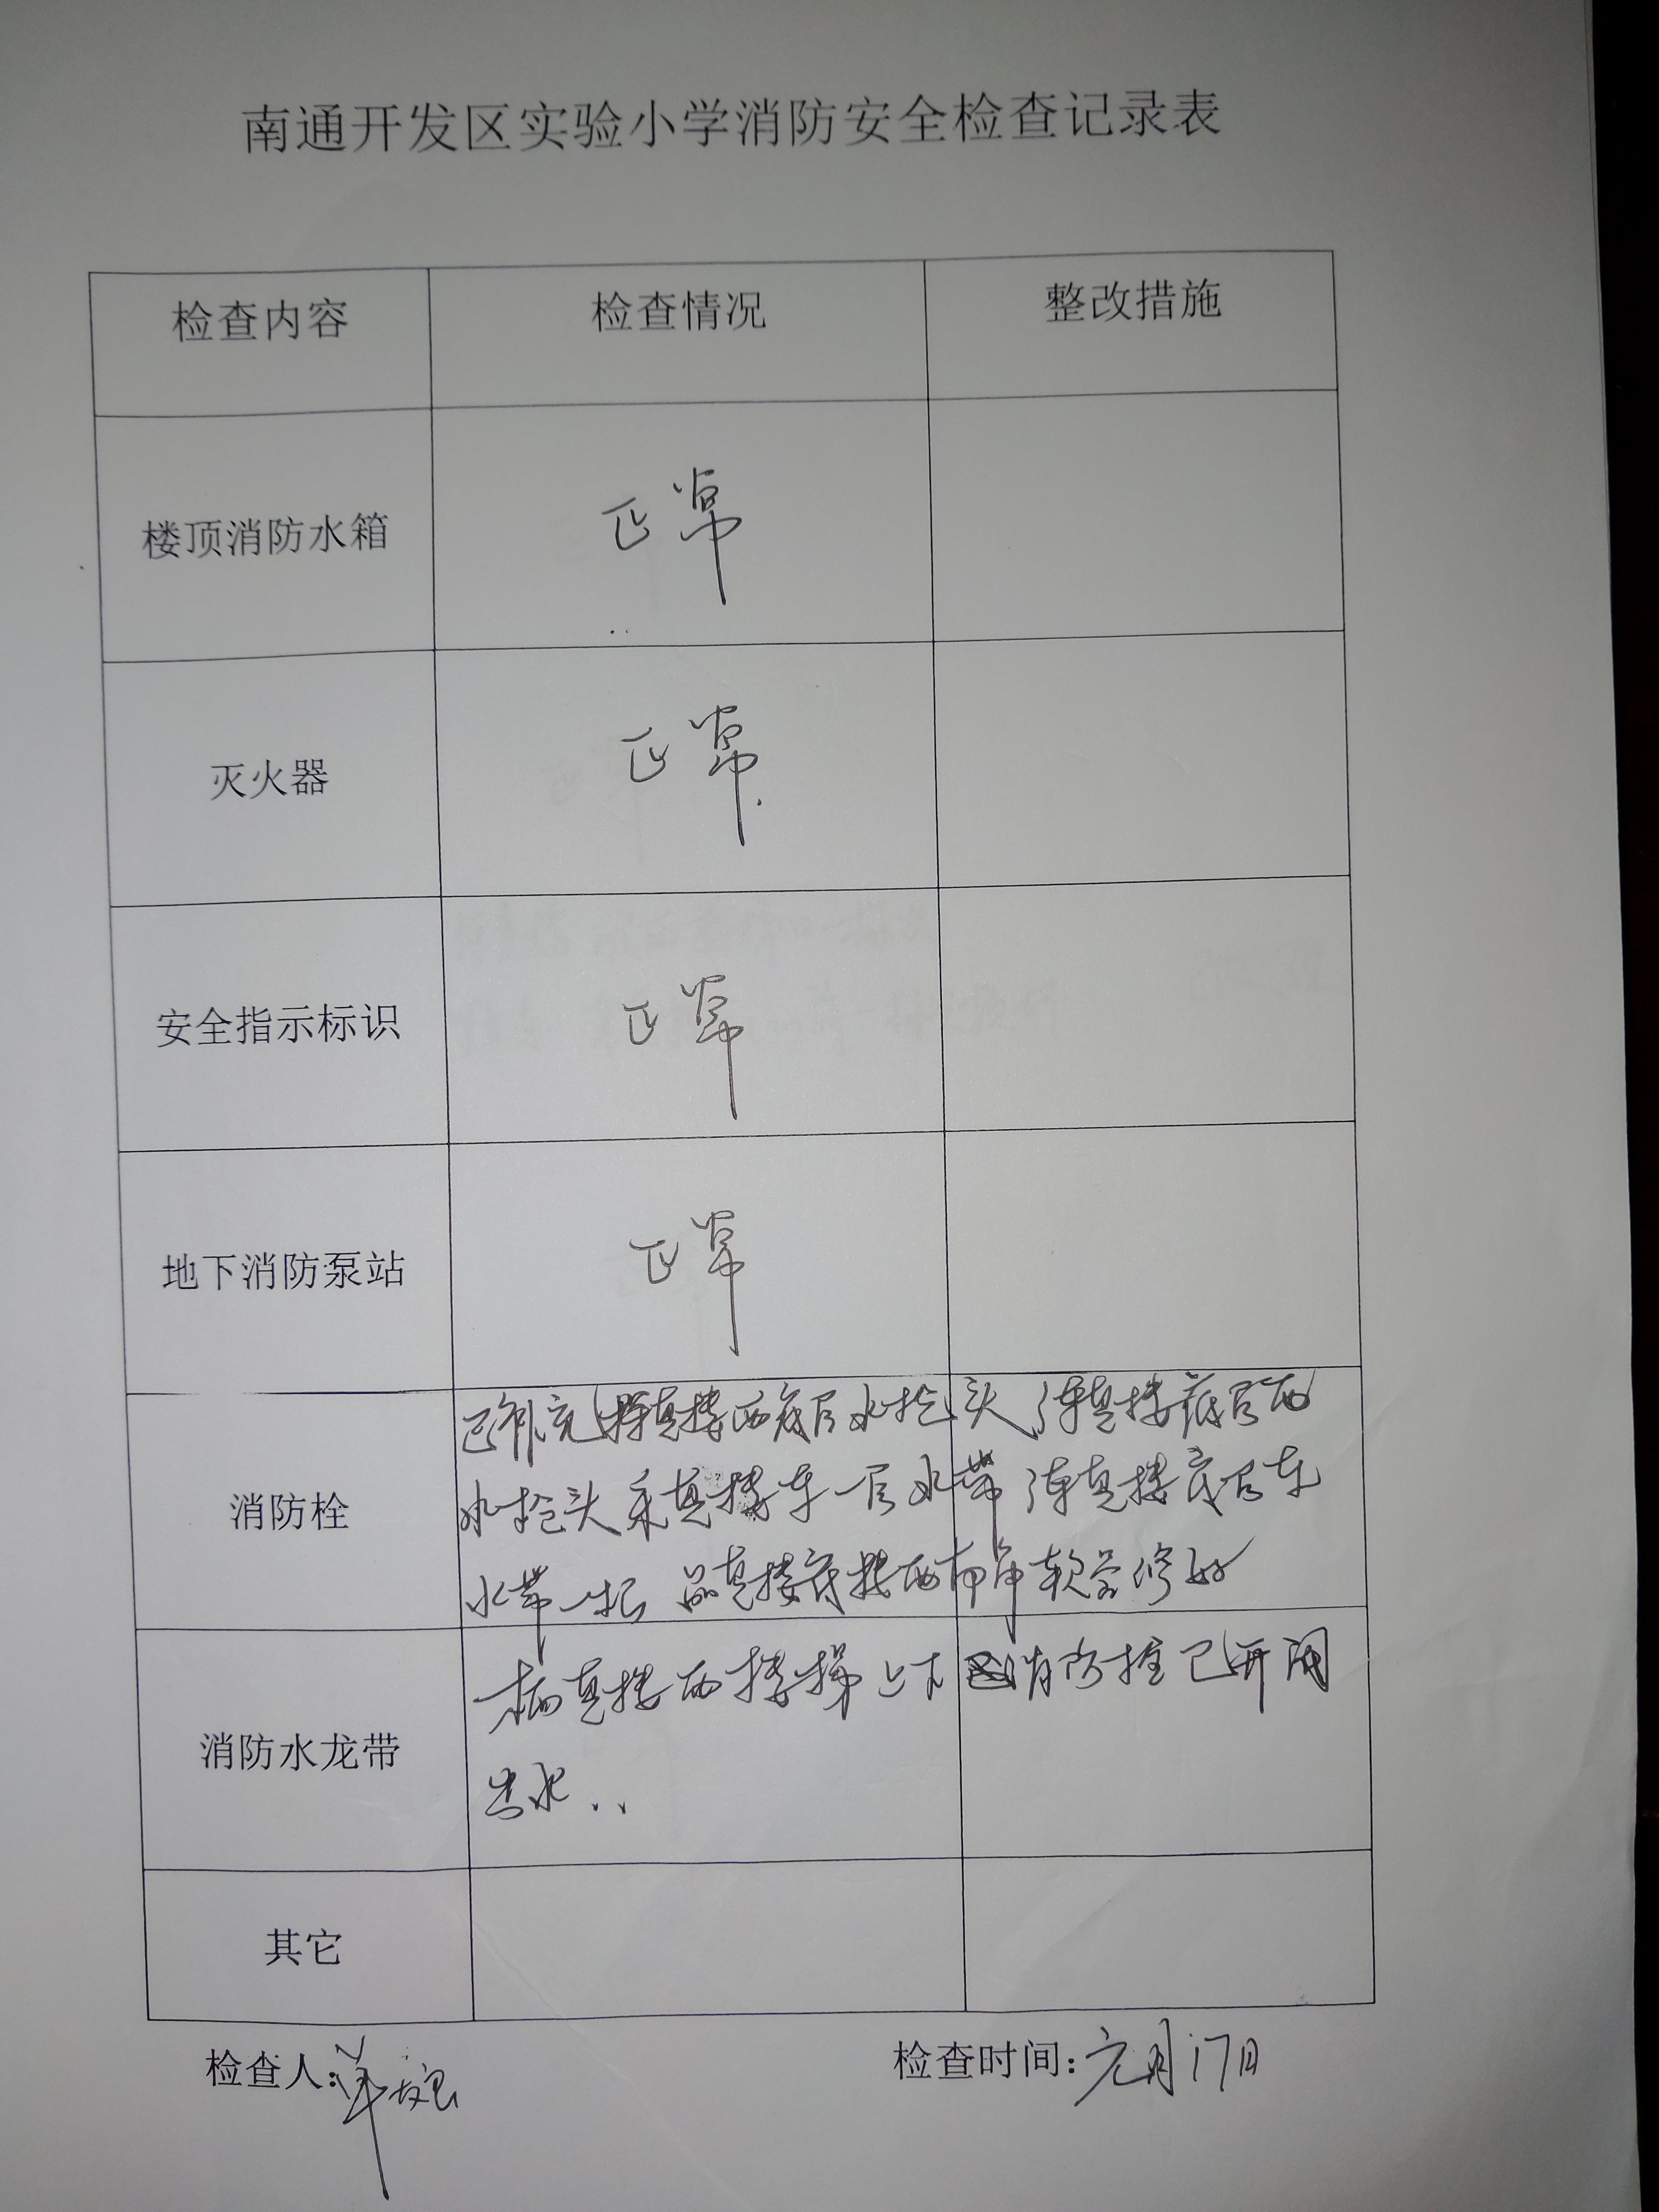 南通开发区实验小学消防安全检查记录表
检查内容 检查情况 整改措施
楼顶消防水箱 正常
灭火器 正常
安全指示标识 正常
地下消防泵站 正常
已补充 真楼西底层水抢头 真楼底层西
消防栓 水抢头 真楼东一层水带 真楼底层东
水带一根 品真楼底楼西 软管修好
真楼西楼梯上下 消防栓已开阀
消防水龙带
出水..
其它
检查人: 检查时间:元月17日